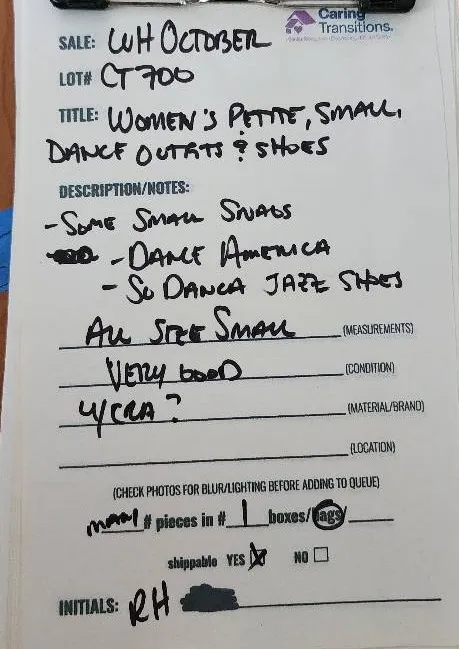 Caring
Transitions.
SALE: WH OCTOBER
LOT# CT700
TITLE: WOMEN'S PETITE, SMALL,
DANCE OUTFITS & SHOES
DESCRIPTION/NOTES:
- SOME SMALL SNAGS
- DANCE AMERICA
- SO DANCA JAZZ SHOES
ALL SIZE SMALL (MEASUREMENTS)
VERY GOOD (CONDITION)
(MATERIAL/BRAND)
(LOCATION)
(CHECK PHOTOS FOR BLUR/LIGHTING BEFORE ADDING TO QUEUE)
MANY # pieces in # 1 boxes/bags/
shippable YES NO
INITIALS: RH